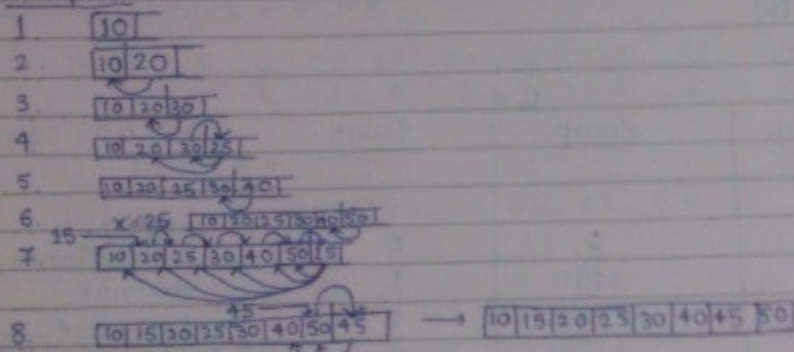 1 10
2 10 20
3 10 20 30
4. 10 20 30 25
5 10 20 25 30 40
6. x=25 10 20 25 30 40 50
15
7 10 20 25 30 40 50 15
45
8 10 15 20 25 30 40 50 45 → 10 15 20 25 30 40 45 50